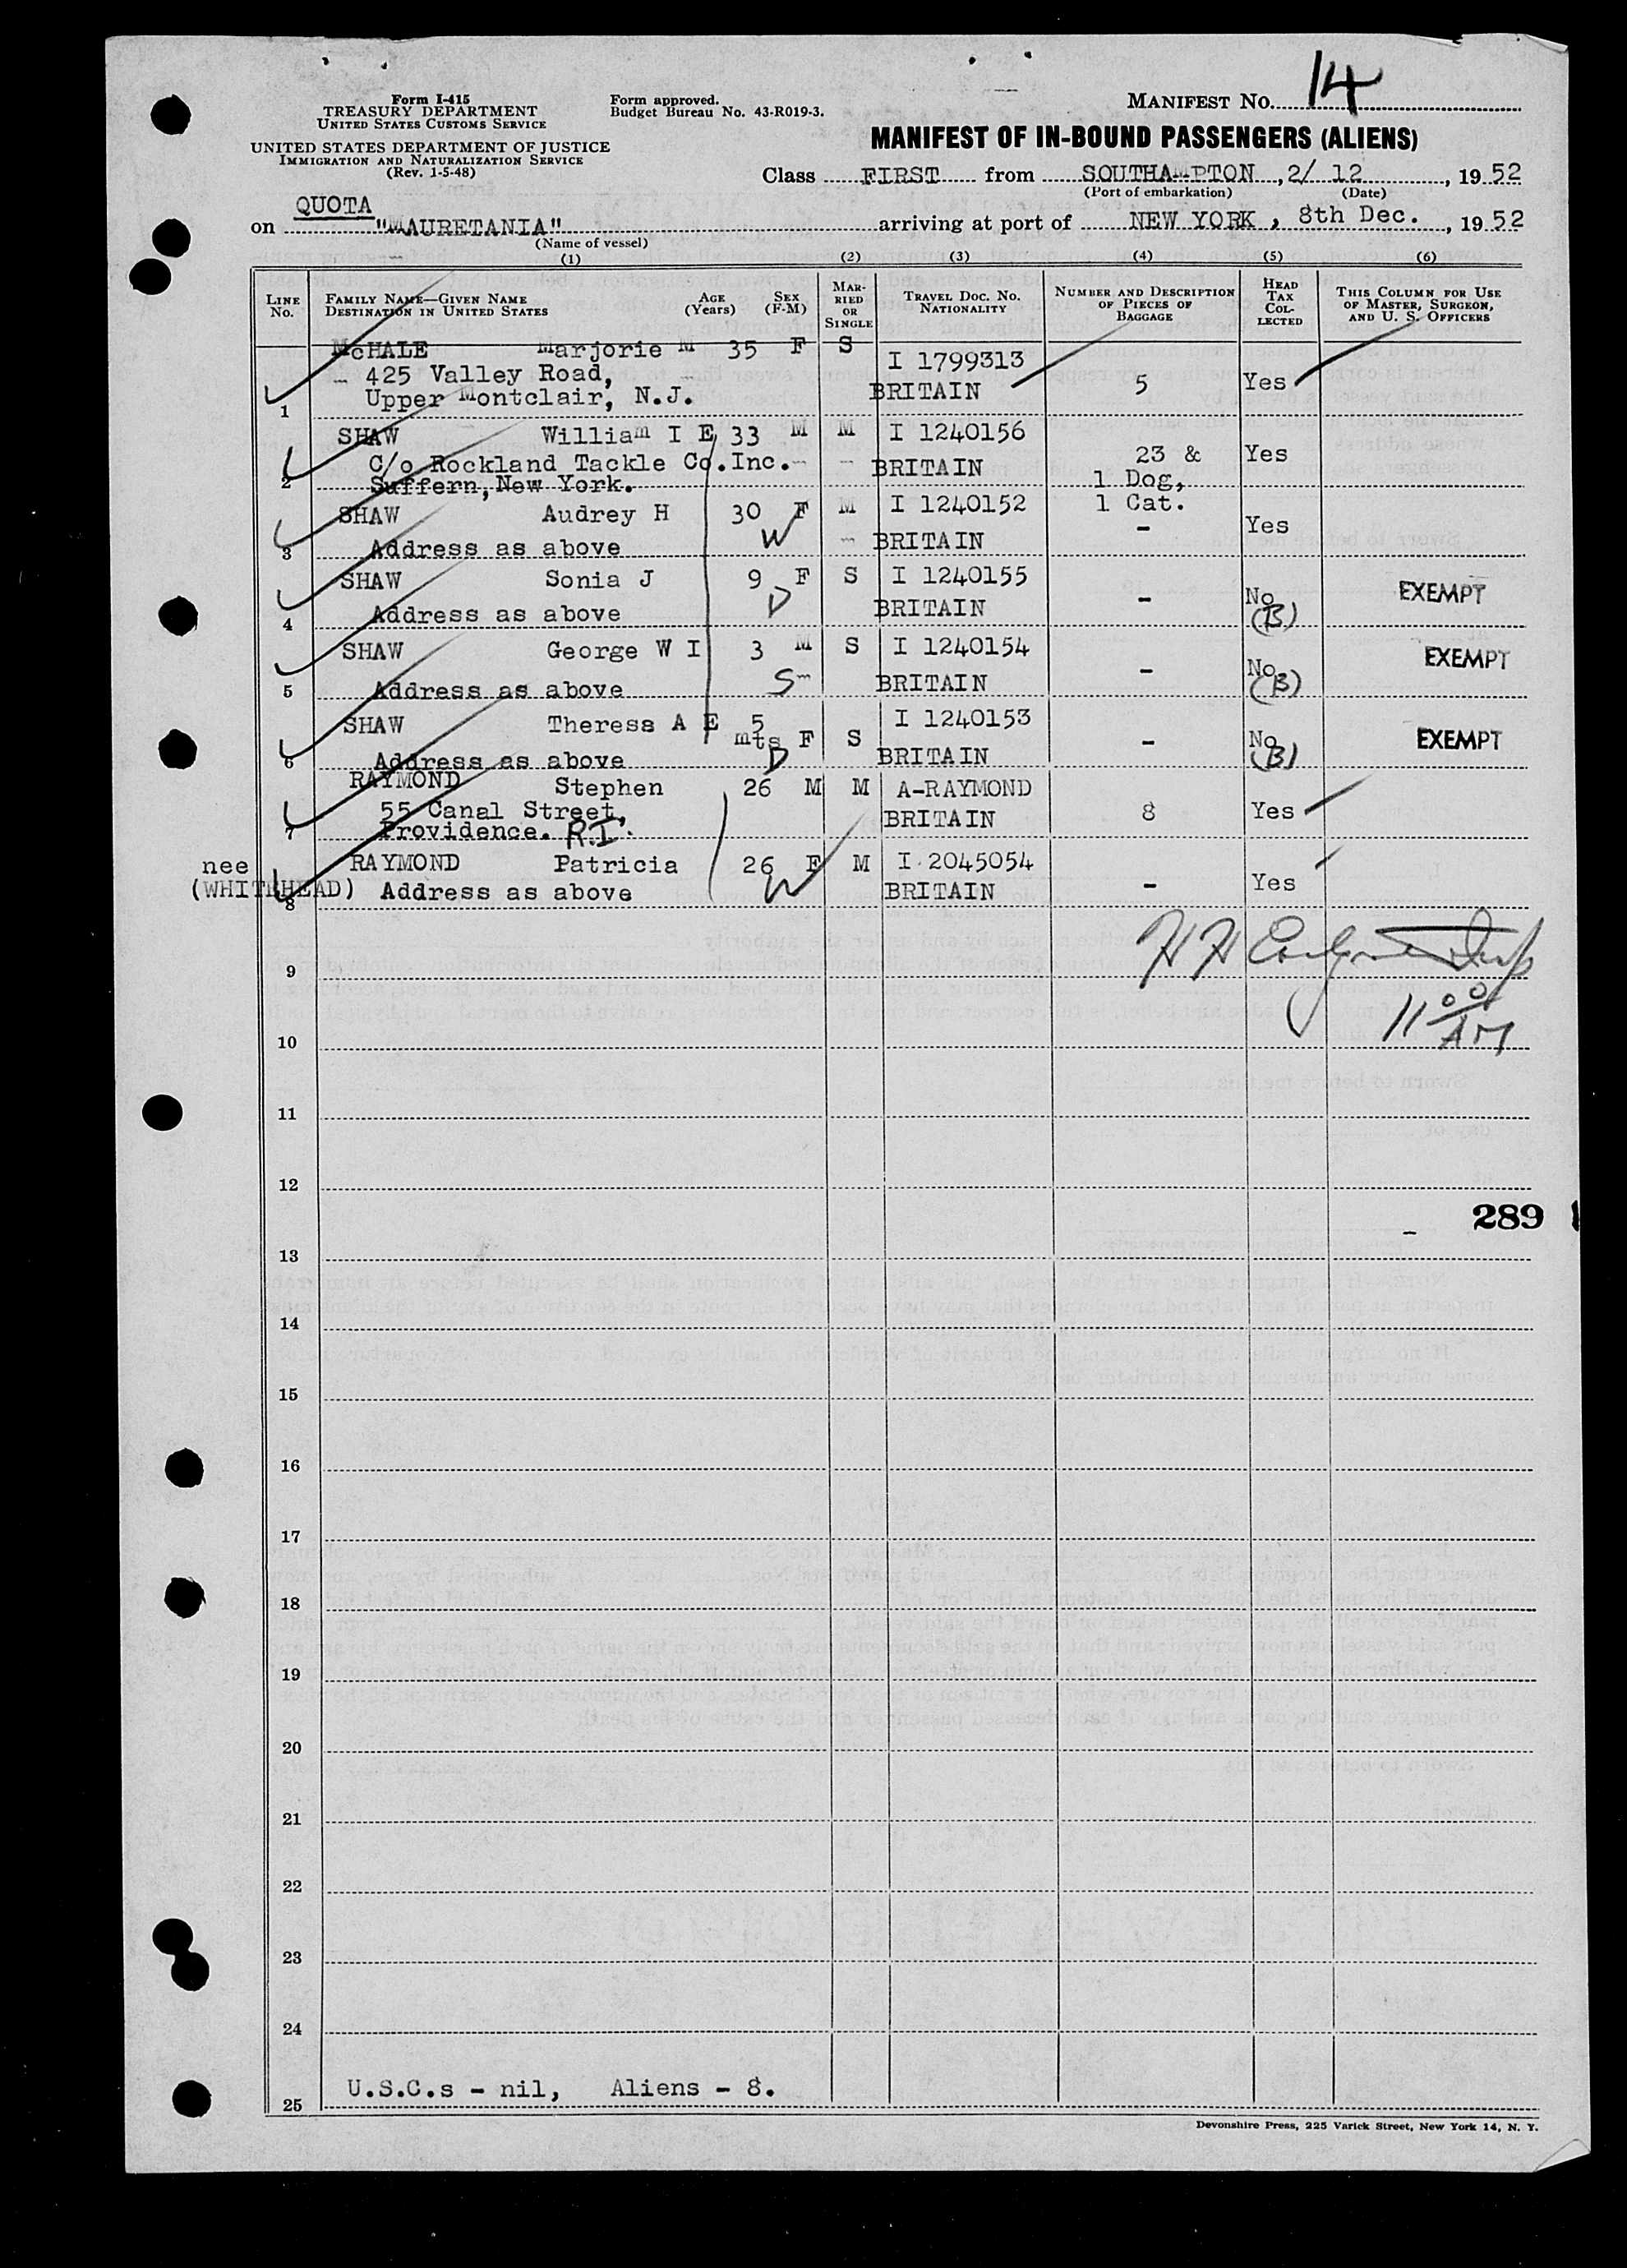 Form I-415
TREASURY DEPARTMENT
UNITED STATES CUSTOMS SERVICE
UNITED STATES DEPARTMENT OF JUSTICE
IMMIGRATION AND NATURALIZATION SERVICE
(Rev. 1-5-48)
Form approved.
Budget Bureau No. 43-R019-3.
MANIFEST NO. 14
MANIFEST OF IN-BOUND PASSENGERS (ALIENS)
Class FIRST from SOUTHAMPTON, 2/ 12, 1952
(Port of embarkation) (Date)
QUOTA
on "MAURETANIA" arriving at port of NEW YORK, 8th Dec., 1952
(Name of vessel)
(1) (2) (3) (4) (5) (6)
LINE No. FAMILY NAME—GIVEN NAME DESTINATION IN UNITED STATES AGE (Years) SEX (F-M) MARRIED OR SINGLE TRAVEL DOC. NO. NATIONALITY NUMBER AND DESCRIPTION OF PIECES OF BAGGAGE HEAD TAX COLLECTED THIS COLUMN FOR USE OF MASTER, SURGEON, AND U. S. OFFICERS
McHALE Marjorie M 35 F S I 1799313
425 Valley Road, BRITAIN 5 Yes
1 Upper Montclair, N.J.
SHAW William I E 33 M M I 1240156
C/o Rockland Tackle Co.Inc. BRITAIN 23 & Yes
2 Suffern, New York. 1 Dog,
SHAW Audrey H 30 F M I 1240152 1 Cat.
W - Yes
3 Address as above BRITAIN
SHAW Sonia J 9 F S I 1240155 - No EXEMPT
4 Address as above D BRITAIN (B)
SHAW George W I 3 M S I 1240154 - No EXEMPT
5 Address as above S BRITAIN (B)
SHAW Theresa A E 5 mts F S I 1240153 - No EXEMPT
6 Address as above D BRITAIN (B)
RAYMOND Stephen 26 M M A-RAYMOND
55 Canal Street, BRITAIN 8 Yes
7 Providence. R.I.
nee RAYMOND Patricia 26 F M I 2045054
(WHITEHEAD) Address as above W BRITAIN - Yes
8
9
11 00 AM
10
11
12
289
13
14
15
16
17
18
19
20
21
22
23
24
U.S.C.s - nil, Aliens - 8.
25
Devonshire Press, 225 Varick Street, New York 14, N. Y.